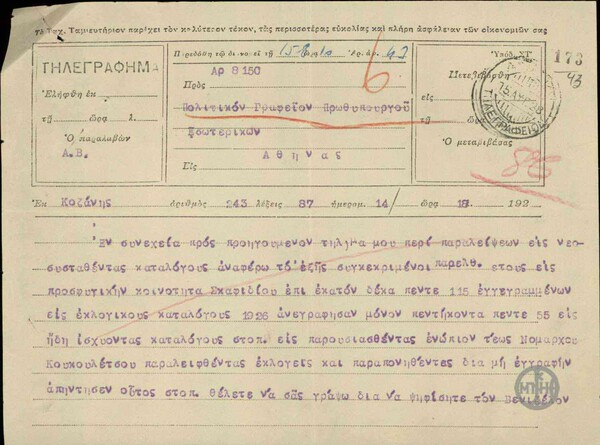 Τὸ Ταχ. Ταμιευτήριον παρέχει τὸν καλύτερον τόκον, τὰς περισσοτέρας εὐκολίας καὶ πλήρη ἀσφάλειαν τῶν οἰκονομιῶν σας
ΤΗΛΕΓΡΑΦΗΜΑ
Ἐλήφθη ἐκ
τῇ ὥρᾳ λ.
Ὁ παραλαβὼν
Α.Β.
Παρεδόθη τῷ διανομεῖ τῇ
Ἀρ. ἀρ. 43
ΑΡ 8150
Πρὸς
Πολιτικόν Γραφεῖον Πρωθυπουργοῦ
Εσωτερικῶν
Αθηνας
Εἰς
6
Ὑπόδ. ΧΓ
173
43
Μετεβιβάσθη
εἰς
τῇ ὥρᾳ
Ὁ μεταβιβάσας
ΤΗΛΕΓΡΑΦΕΙΟΝ
Ἐκ Κοζάνης ἀριθμὸς 243 λέξεις 87 ἡμερομ. 14/ ὥρα 18. 192
Εν συνεχεία πρός προηγουμενον τηλημα μου περί παραλείψεων εις νεο-
συσταθέντας καταλόγους αναφέρω τό εξής συγκεκριμένοι παρελθ. ετους εις
προσφυγικήν κοινοτητα Σκαφιδίου επι εκατόν δέκα πεντε 115 εγγεγραμμένων
είς εκλογικους καταλόγους 1926 ανεγραφησαν μόνον πεντήκοντα πεντε 55 εις
ήδη ίσχύοντας καταλόγους στοπ. είς παρουσιασθέντας ενώπιον τέως Νομαρχου
Κουκουλέτσου παραλειφθέντας εκλογείς και παραπονηθέντας δια μή εγγραφήν
απήντησεν οὗτος στοπ. θέλετε να σᾶς γράψω δια να ψηφίσητε τόν Βενιζέλον